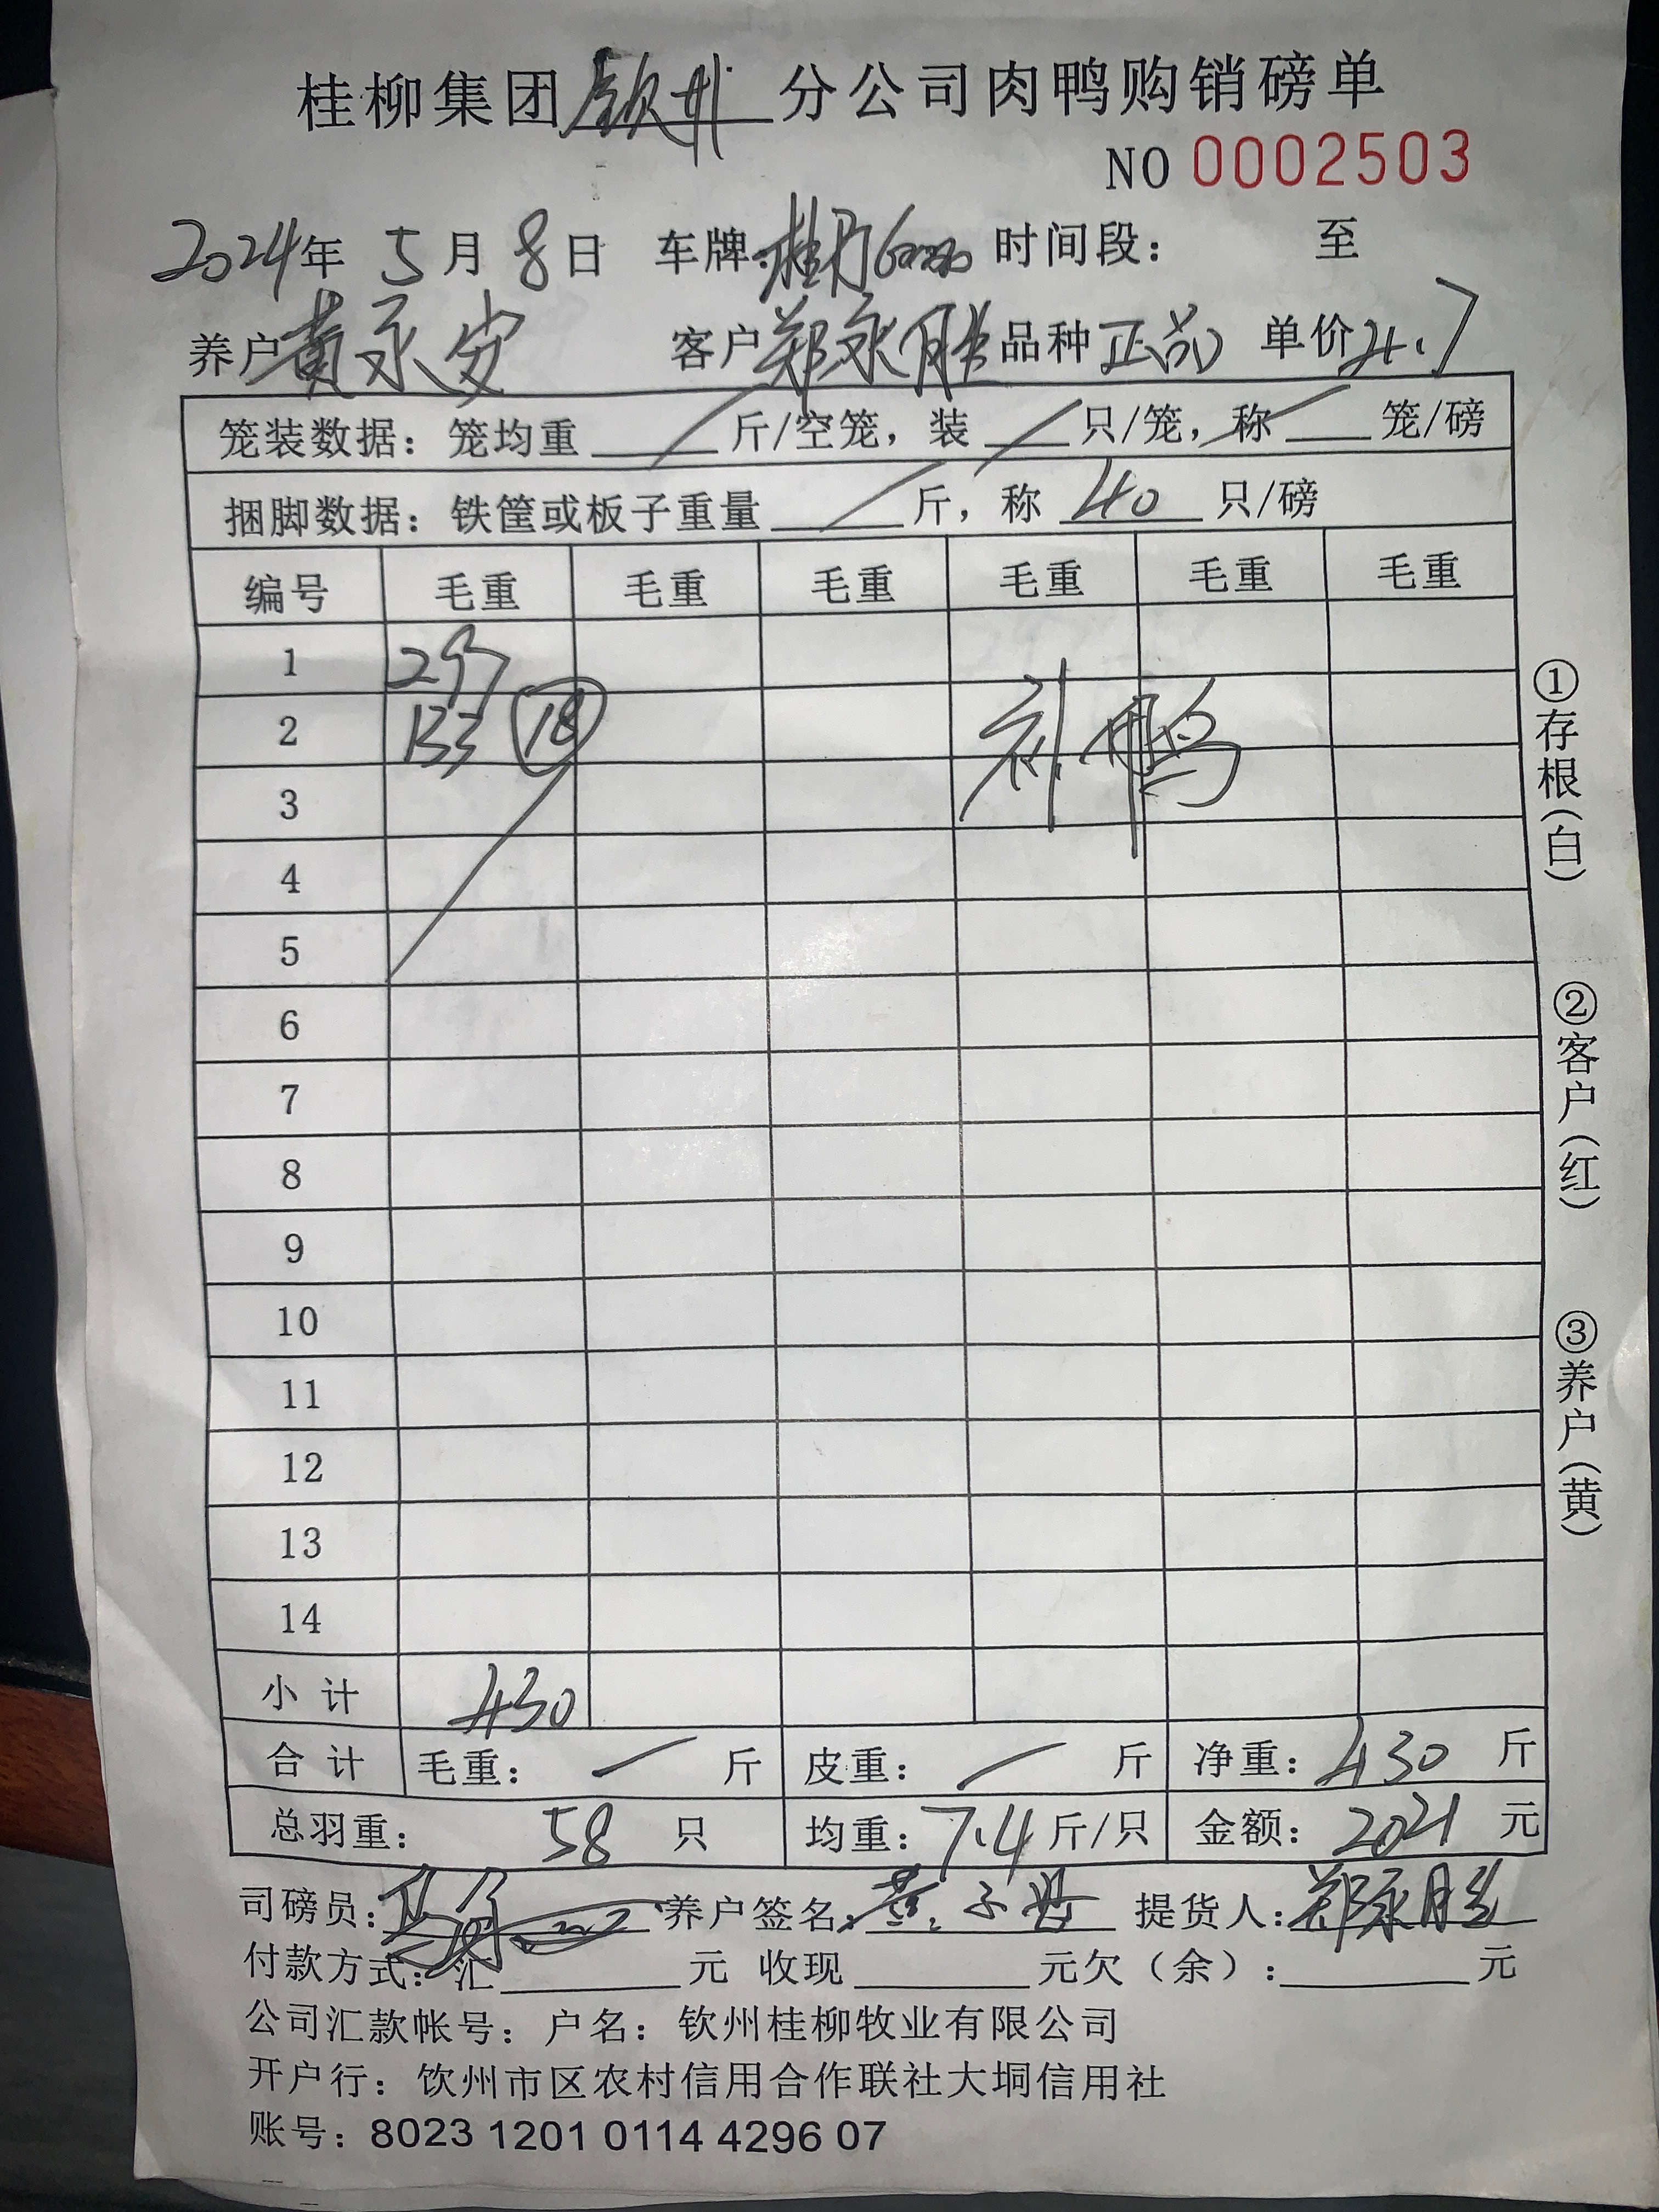 桂柳集团钦州分公司肉鸭购销磅单
NO 0002503
2024年 5月 8日 车牌: 时间段: 至
养户黄永安 客户郑永胜 品种正品 单价4.7
笼装数据：笼均重 斤/空笼，装 只/笼，称 笼/磅
捆脚数据：铁筐或板子重量 斤，称 40 只/磅
编号 毛重 毛重 毛重 毛重 毛重 毛重
1 297
2 133 18 补鸭
3
4
5
6
7
8
9
10
11
12
13
14
小计 430
合计 毛重： 斤 皮重： 斤 净重：430 斤
总羽重： 58 只 均重：7.4 斤/只 金额：2021 元
司磅员: 养户签名: 黄 提货人: 郑永胜
付款方式：汇 元 收现 元欠（余）: 元
公司汇款帐号：户名：钦州桂柳牧业有限公司
开户行：钦州市区农村信用合作联社大垌信用社
账号：8023 1201 0114 4296 07
①存根（白）
②客户（红）
③养户（黄）